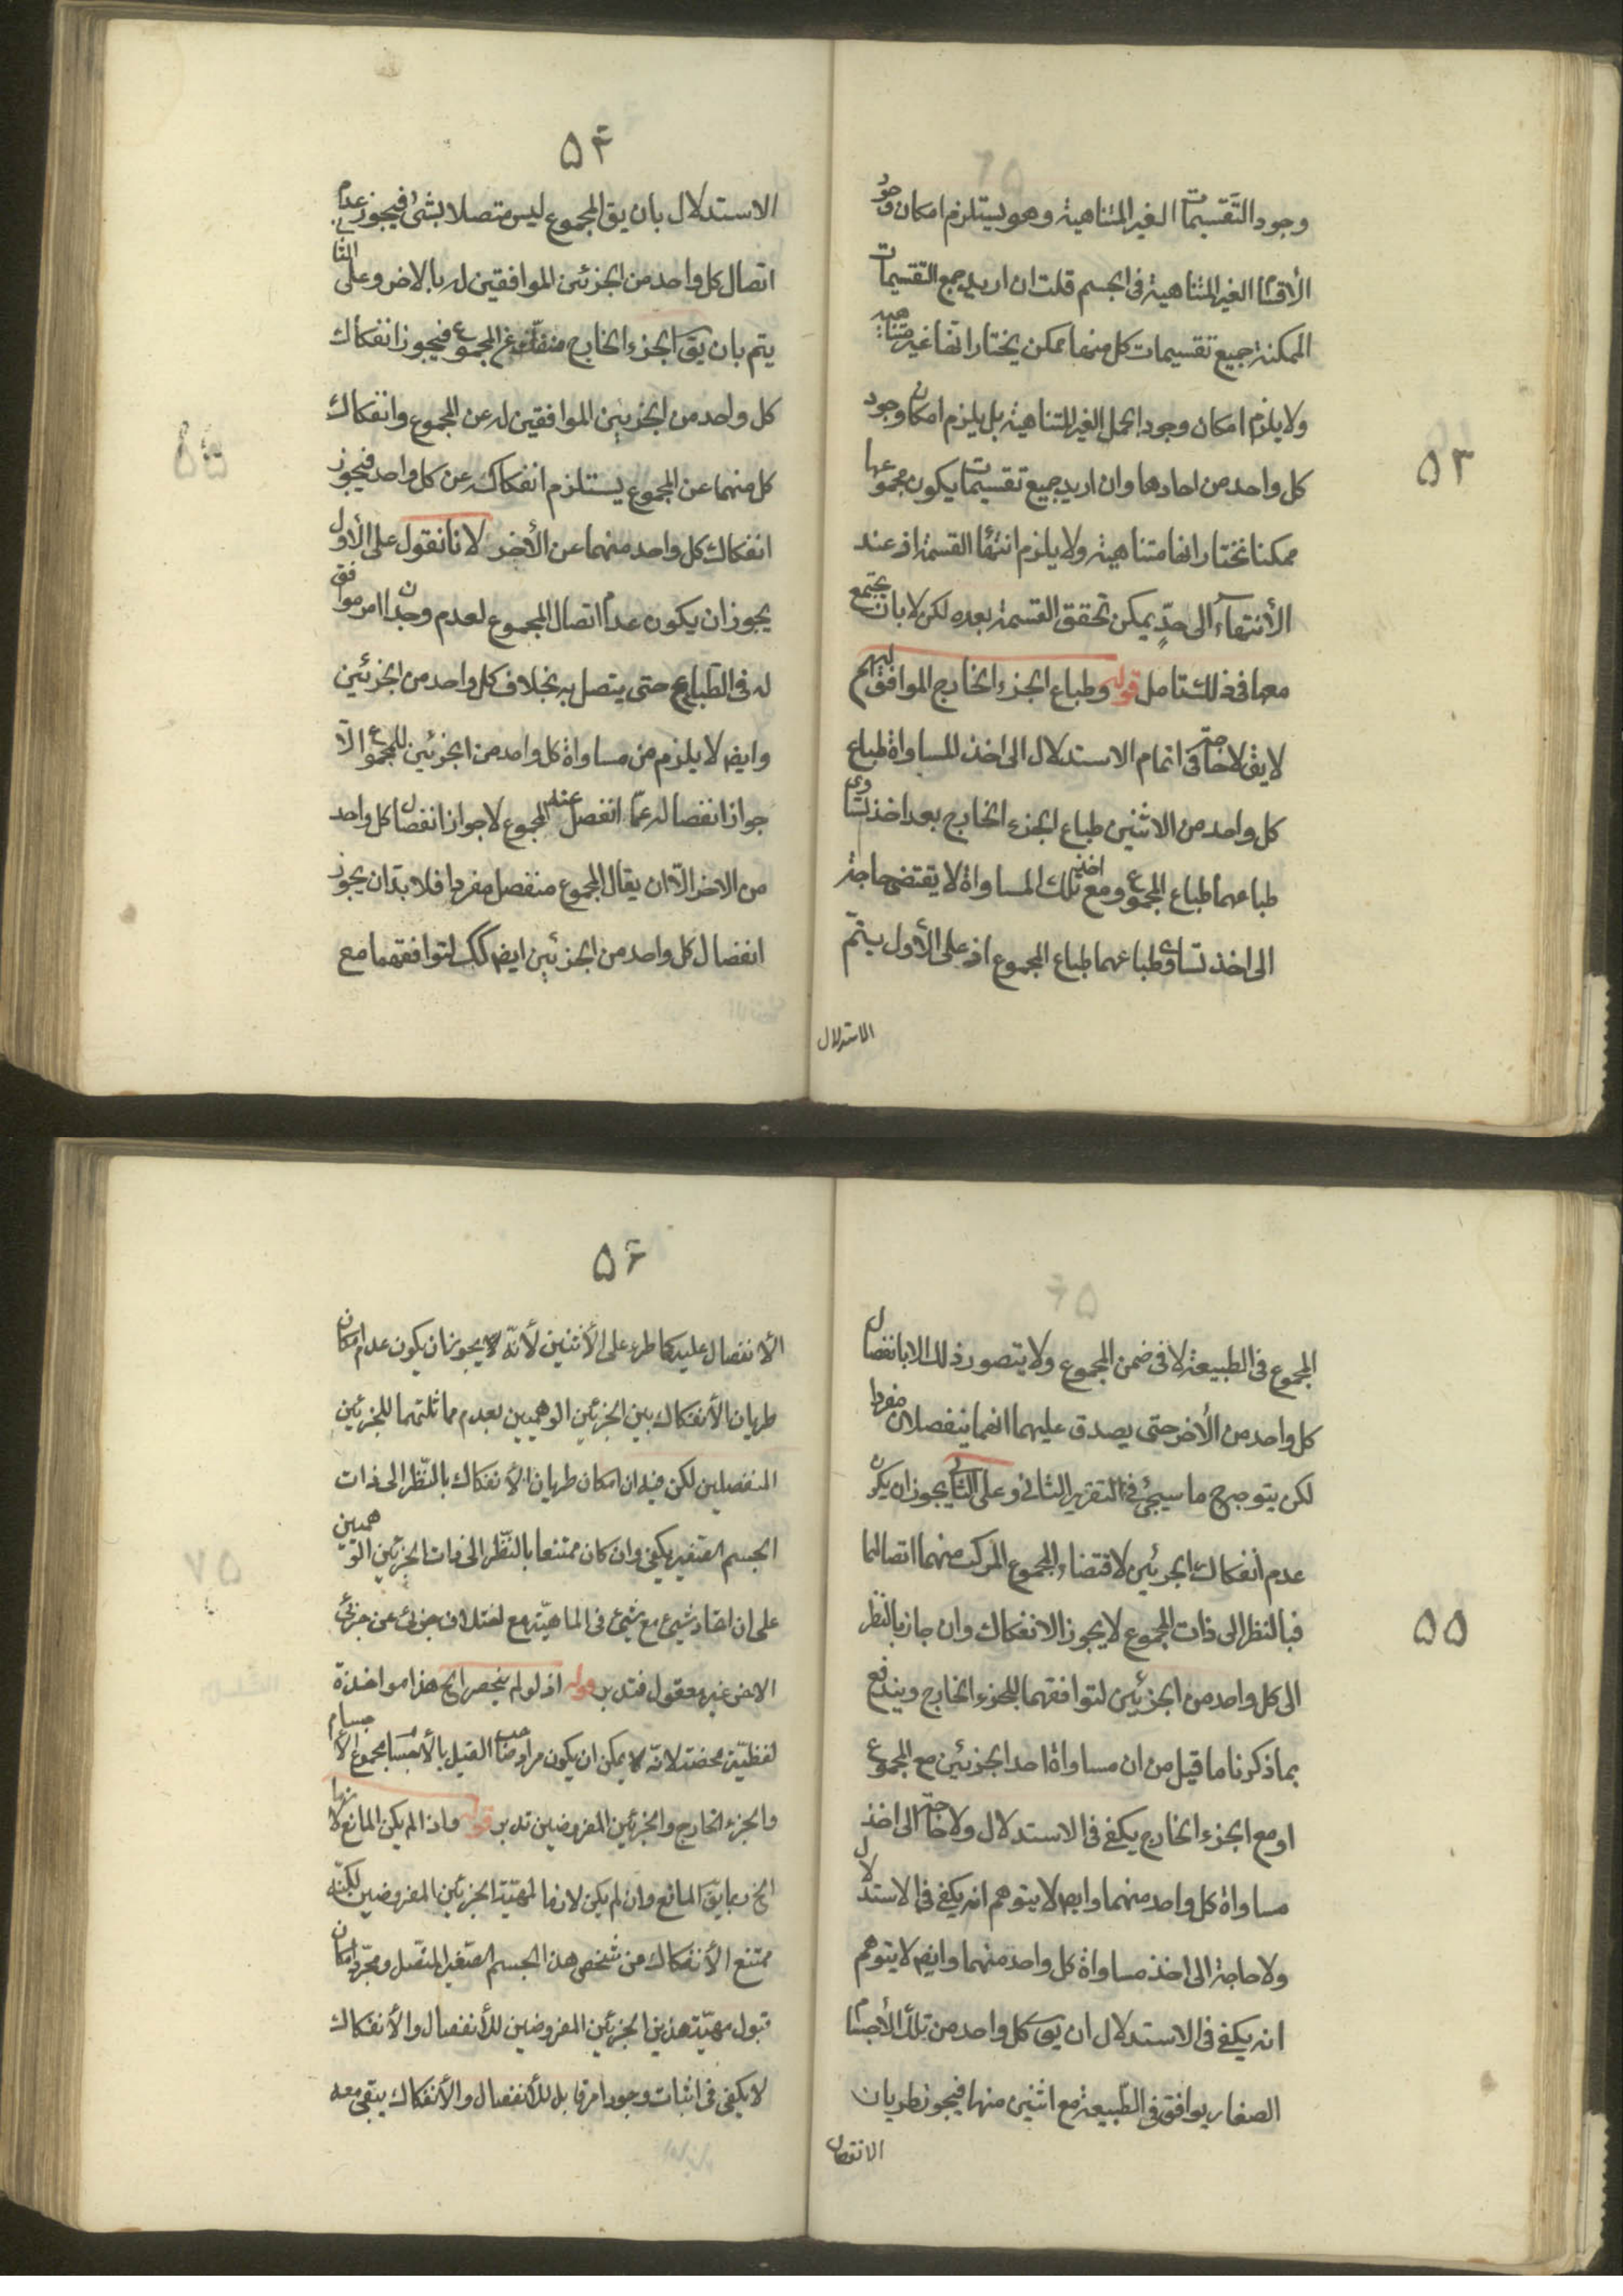 ۵۳
وجود التقسيمات الغير المتناهية وهو يستلزم امكان وجود
الأقسام الغير المتناهية فى الجسم قلت ان اريد جميع التقسيمات
الممكنة جميع تقسيمات كل منها ممكن يختار انها غير متناهية
ولا يلزم امكان وجود الغير المتناهية بل يلزم امكان وجود
كل واحد من احادها وان اريد جميع تقسيمات يكون مجموعها
ممكنا نختار انها متناهية ولا يلزم انتهاء القسمة اذ عند
الأنتهاء الى حدٍّ يمكن تحقق القسمة بعده لكن لا بان يجتمع
معها فى ذلك تامل قوله وطباع الجزء الخارج الموافق لهم
لا يق لا حاجة فى اتمام الاستدلال الى اخذ المساواة طباع
كل واحد من الاثنين طباع الجزء الخارج بعد اخذ تساوى
طباعهما طباع المجموع ومع اخذ تلك المساواة لا يقتضى حاجة
الى اخذ تساوى طباعهما طباع المجموع اذ على الأول يتمّ
الاستدلال
۵۴
الاستدلال بان يق المجموع ليس متصلا بشئ فيجوز عدم
اتصال كل واحد من الجزئين الموافقين له بالاخر وعلى الثانى
يتم بان يق الجزء الخارج منفك عن المجموع فيجوز انفكاك
كل واحد من الجزئين الموافقين له عن المجموع وانفكاك
كل منهما عن المجموع يستلزم انفكاكه عن كل واحد فيجوز
انفكاك كل واحد منهما عن الأخر لانا نقول على الأول
يجوز ان يكون عدم اتصال المجموع لعدم وجدان امر موافق
له فى الطبايع حتى يتصل به بخلاف كل واحد من الجزئين
وايضا لا يلزم من مساواة كل واحد من الجزئين للمجموع الّا
جواز انفصاله عمّا انفصل عنه المجموع لا جواز انفصال كل واحد
من الاخر الّا ان يقال المجموع منفصل مفردا فلا بدّ ان يجوز
انفصال كل واحد من الجزئين ايض كك لتوافقهما مع
۵۵
المجموع فى الطبيعة لا فى ضمن المجموع ولا يتصور ذلك الا بانفصال
كل واحد من الأخر حتى يصدق عليهما انهما ينفصلان مفردا
لكن يتوجه ح ما سيجئ فى التقرير الثانى وعلى الثانى يجوز ان يكون
عدم انفكاك الجزئين لاقتضاء المجموع المركب منهما اتصالهما
فبالنظر الى ذات المجموع لا يجوز الانفكاك وان جاز بالنظر
الى كل واحد من الجزئين لتوافقهما للجزء الخارج ويندفع
بما ذكرنا ما قيل من ان مساواة احد الجزئين مع المجموع
او مع الجزء الخارج يكفى فى الاستدلال ولا حاجة الى اخذ
مساواة كل واحد منهما وايض لا يتوهم انه يكفى فى الاستدلال
ولا حاجة الى اخذ مساواة كل واحد منهما وايض لا يتوهم
انه يكفى فى الاستدلال ان يق كل واحد من تلك الأجسام
الصغار يوافق فى الطبيعة مع اثنين منها فيجوز طريان
الانفصال
۵۶
الأنفصال عليه كما طرء على الأثنين لأنّه لا يجوز ان يكون عدم امكان
طريان الأنفكاك بين الجزئين الوهميين بعدم مماثلتهما للجزئين
المنفصلين لكن فيه ان امكان طريان الأنفكاك بالنّظر الى ذات
الجسم الصّغير يكفى وان كان ممتنعا بالنّظر الى ذات الجزئين الوهميين
على ان اتحاد شيئ مع شيئ فى الماهيّة مع اختلاف جزئى عن جزئى
الاخر غير معقول فتدبر قوله اذ لو لم ينحصر الخ هذا مواخذة
لفظيّة محضة لانّه لا يمكن ان يكون مراد صاحب القيل بالأجسام مجموع الأجسام
والجزء الخارج والجزئين المفروضين تدبر قوله واذا لم يكن المانع لازما
الخ ربما يق المانع وان لم يكن لازما لمهيّة الجزئين المفروضين لكنّه
ممتنع الأنفكاك من شخص هذا الجسم الصّغير المتّصل ومجرّد امكان
قبول مهيّة هذين الجزئين المفروضين للأنفصال والأنفكاك
لا يكفى فى اثبات وجود امر قابل للأنفصال والأنفكاك يبقى معه